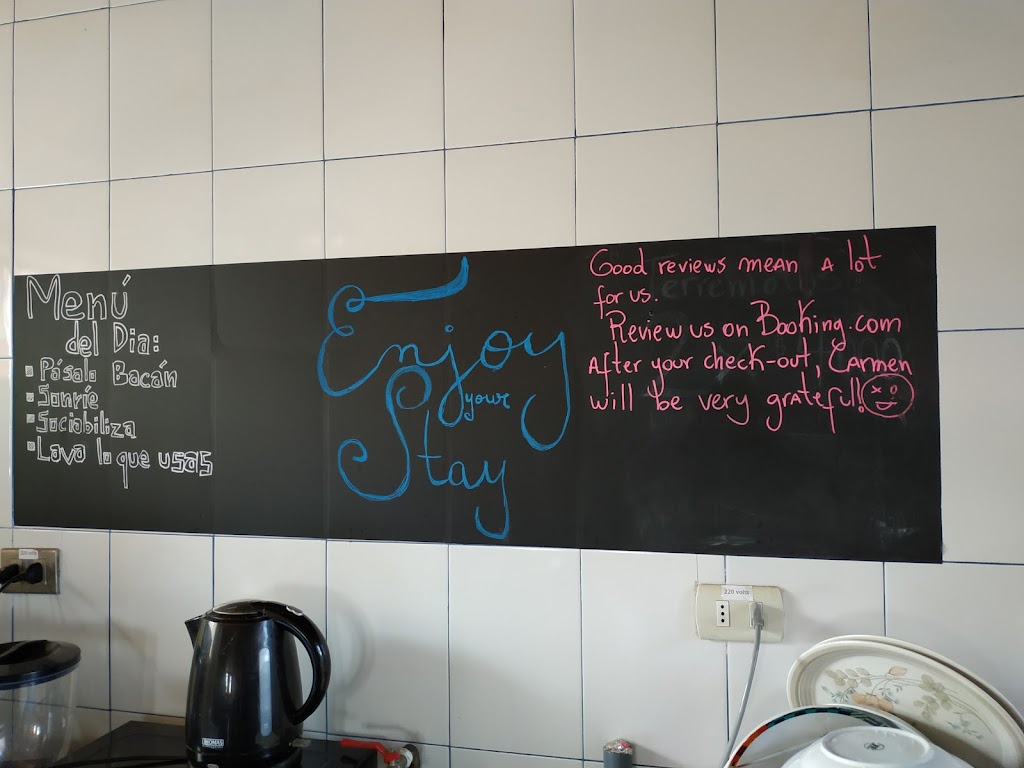 Menú
del Dia:
▪ Pásalo Bacán
▪ Sonríe
▪ Sociabiliza
▪ Lava lo que usas
Enjoy
your
Stay
Good reviews mean a lot
for us.
Review us on Booking.com
After your check-out, Carmen
will be very grateful!
220 volts
220 volts
THOMAS